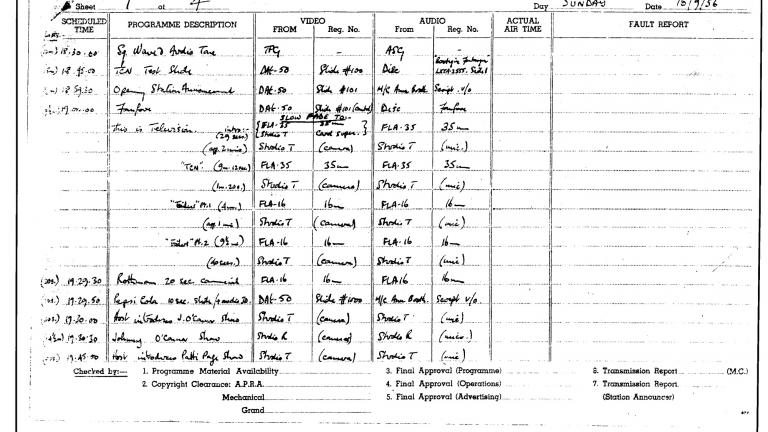 Sheet 1 of 4 Day SUNDAY Date 16/9/56
SCHEDULED TIME PROGRAMME DESCRIPTION VIDEO FROM Reg. No. AUDIO From Reg. No. ACTUAL AIR TIME FAULT REPORT
18.30.00 Sq Wave & Audio Tone TPG - ASG -
18.45.00 TCN Test Slide DAE-50 Slide #100 Disc Side 1
18.59.30 Opening Station Announcement DAE-50 Slide #101 M/c Ann Booth Script v/o
19.00.00 Fanfare DAE-50 Slide #101 (contd) Disc Fanfare
SLOW FADE TO:-
This is Television. intro:- (29 secs) FLA-35 35m FLA-35 35m
Studio T Card super.
(app. 2 mins) Studio T (camera) Studio T (mic.)
"TCN" (9m. 12sec) FLA-35 35m FLA-35 35m
(1m. 20s.) Studio T (camera) Studio T (mic)
Pt.1 FLA-16 16m FLA-16 16m
(app. 1 min) Studio T (camera) Studio T (mic)
Pt.2 (9½m) FLA-16 16m FLA-16 16m
(40 secs.) Studio T (camera) Studio T (mic)
19.29.30 Rothmans 20 sec. commercial FLA-16 16m FLA16 16m
19.29.50 Pepsi Cola 10 sec. slide DAE-50 Slide #1000 M/c Ann Booth. Script v/o
19.30.00 Host introduces J. O'Connor Show Studio T (camera) Studio T (mic)
19.30.30 Johnny O'Connor Show Studio R (camera) Studio R (mics.)
19.45.00 Host introduces Patti Page Show Studio T (camera) Studio T (mic)
Checked by:— 1. Programme Material Availability 3. Final Approval (Programme) 6. Transmission Report (M.C.)
2. Copyright Clearance: A.P.R.A. 4. Final Approval (Operations) 7. Transmission Report
Mechanical 5. Final Approval (Advertising) (Station Announcer)
Grand